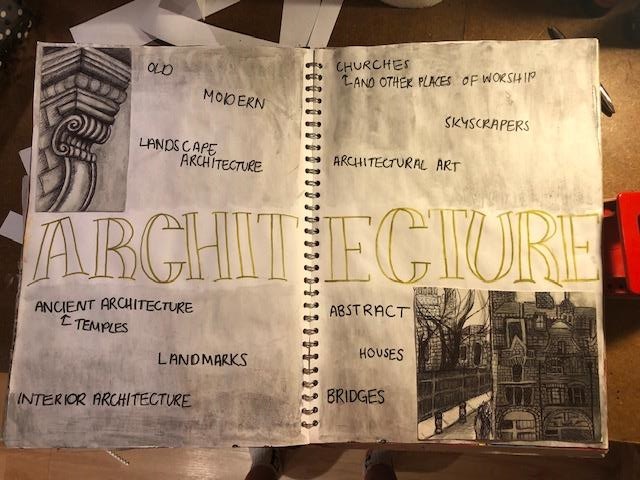 OLD
MODERN
LANDSCAPE
ARCHITECTURE
CHURCHES
AND OTHER PLACES OF WORSHIP
SKYSCRAPERS
ARCHITECTURAL ART
ARCHITECTURE
ANCIENT ARCHITECTURE
TEMPLES
LANDMARKS
INTERIOR ARCHITECTURE
ABSTRACT
HOUSES
BRIDGES